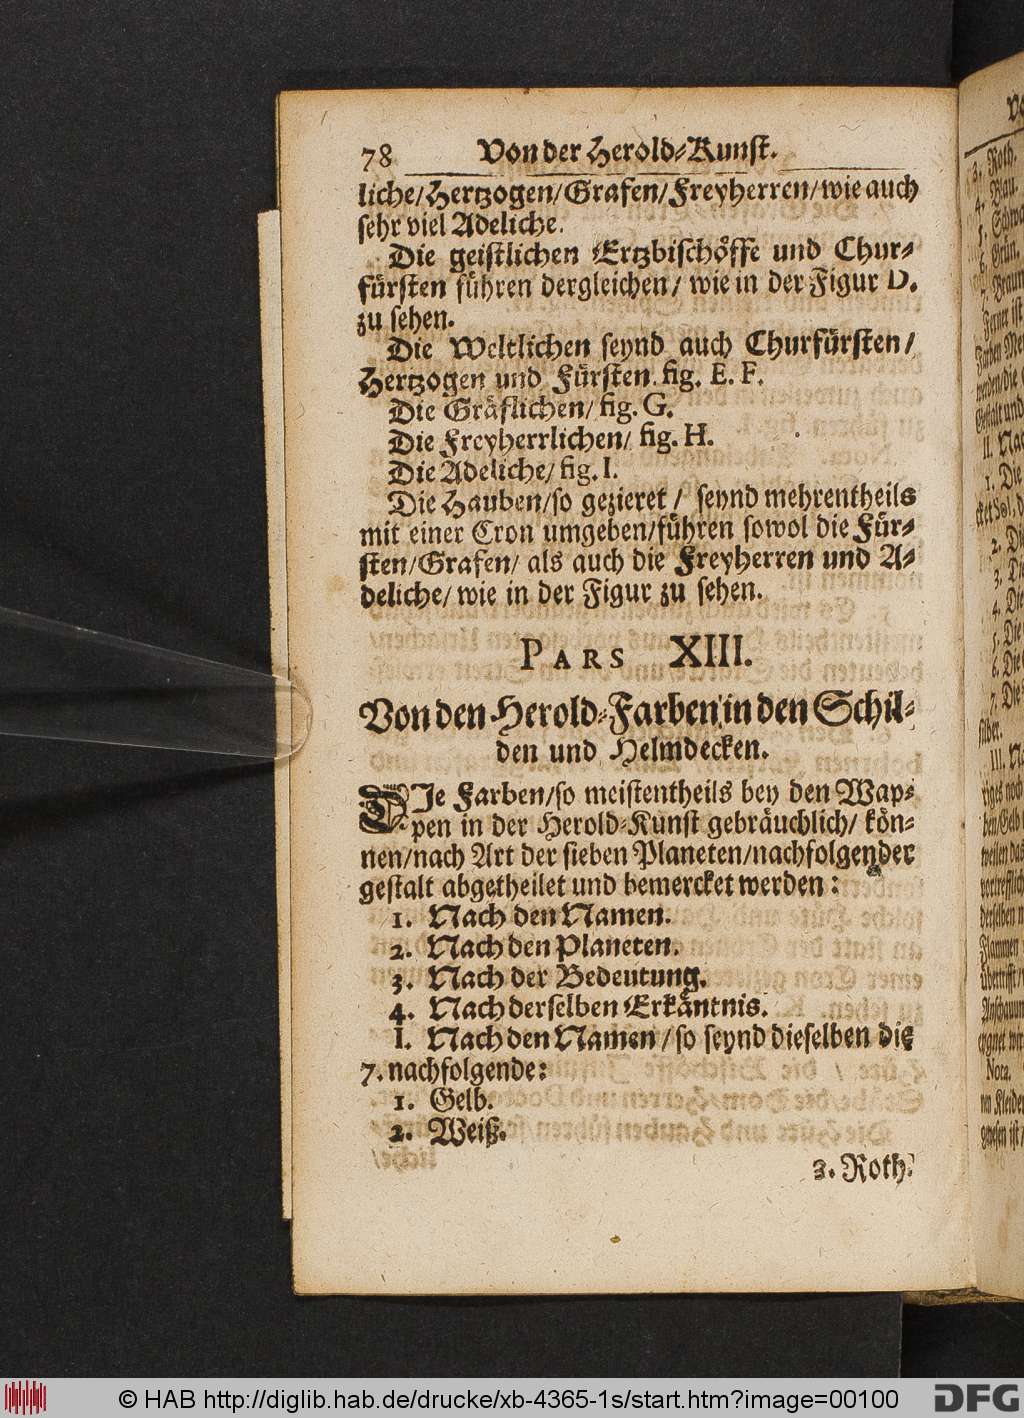 78 Von der Herold-Kunst.
liche/Hertzogen/Grafen/Freyherren/wie auch
sehr viel Adeliche.
Die geistlichen Ertzbischöffe und Chur-
fürsten führen dergleichen/ wie in der Figur D.
zu sehen.
Die Weltlichen seynd auch Churfürsten/
Hertzogen und Fürsten. fig. E. F.
Die Gräflichen/ fig. G.
Die Freyherrlichen/ fig. H.
Die Adeliche/ fig. I.
Die Hauben/so gezieret / seynd mehrentheils
mit einer Cron umgeben/führen sowol die Für-
sten/Grafen/ als auch die Freyherren und A-
deliche/ wie in der Figur zu sehen.
PARS XIII.
Von den Herold-Farben in den Schil-
den und Helmdecken.
DIe Farben/so meistentheils bey den Wap-
pen in der Herold-Kunst gebräuchlich/ kön-
nen/nach Art der sieben Planeten/nachfolgender
gestalt abgetheilet und bemercket werden:
1. Nach den Namen.
2. Nach den Planeten.
3. Nach der Bedeutung.
4. Nach derselben Erkäntnis.
I. Nach den Namen /so seynd dieselben die
7. nachfolgende:
1. Gelb.
2. Weiß.
3. Roth.
3. Roth.
4. Blau.
6. Grün.
II. Nach
1. Die
2. Die
3. Die
4. Die
5. Die
6. Die
7. Die
silber.
Nota.
© HAB http://diglib.hab.de/drucke/xb-4365-1s/start.htm?image=00100
DFG